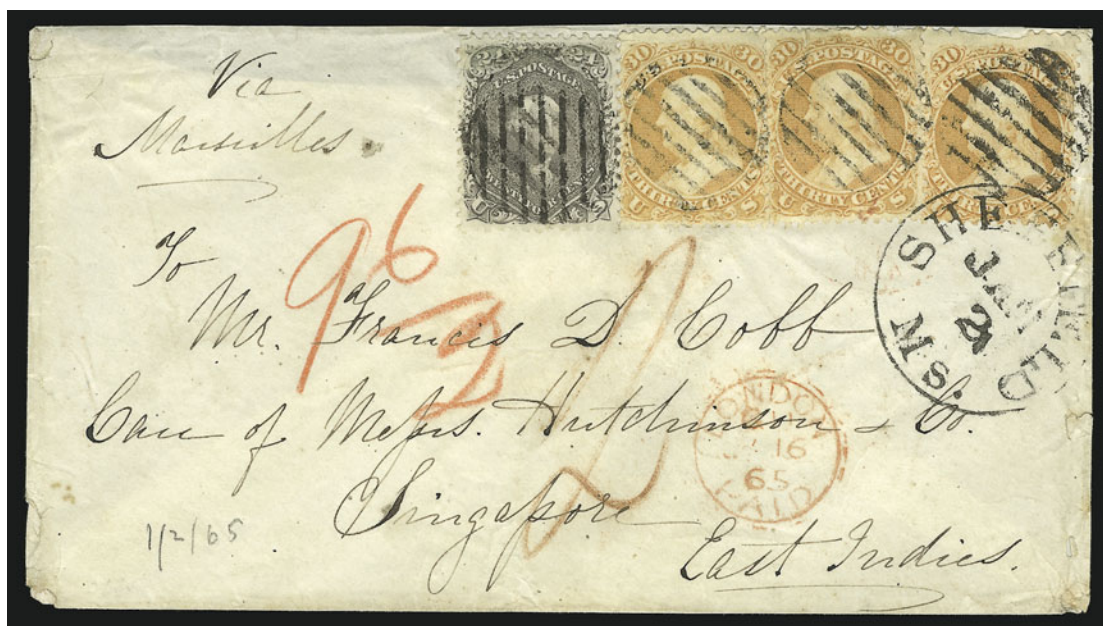 Via
Marseilles
24 24
U.S. POSTAGE
U S
30 30
U.S. POSTAGE
THIRTY CENTS
U S
30 30
U.S. POSTAGE
THIRTY CENTS
U S
30
U.S. POSTAGE
CENTS
S. SHEFFIELD
JAN
2
96
2
To
Mr. Francis D. Cobb
Care of Messrs. Hutchinson & Co.
Singapore
East Indies.
LONDON
16
65
PAID
1/2/65